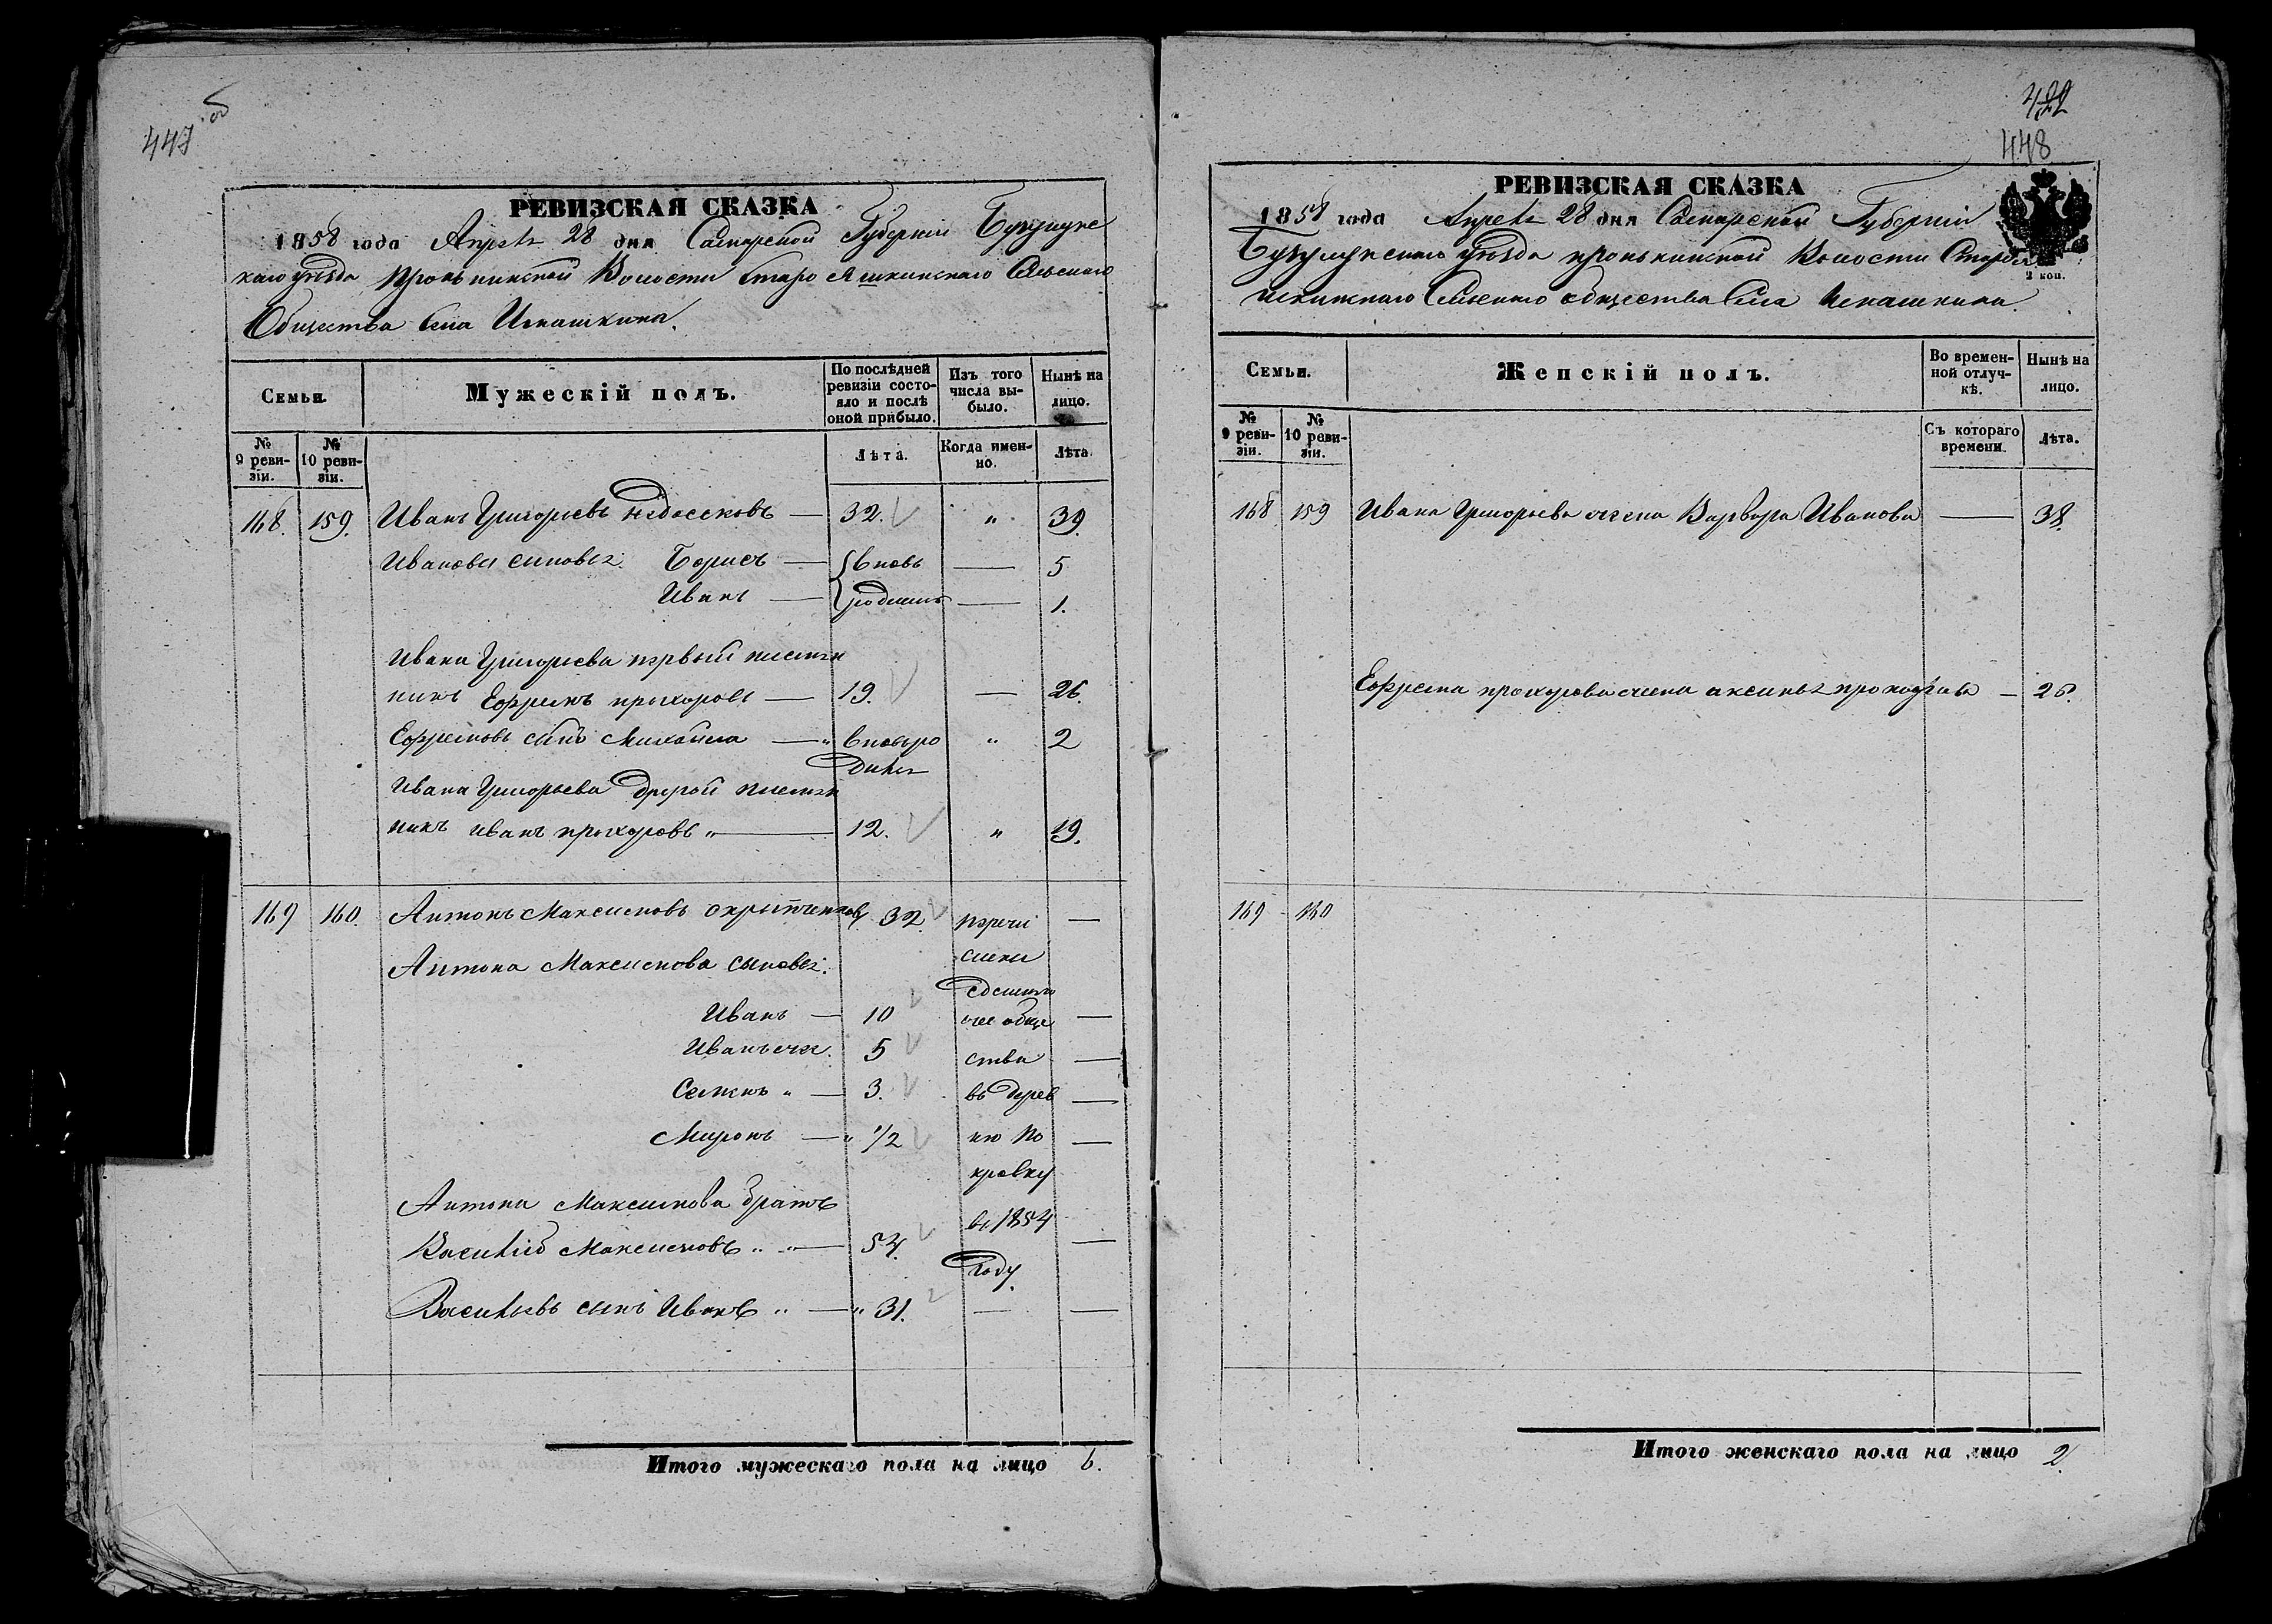 447 об
РЕВИЗСКАЯ СКАЗКА
1858 года Апреля 28 дня Самарской Губернии Бузулукс
каго уезда Пронькинской Волости Старо Яшкинскаго Сельскаго
Общества Села Игнашкина.
Семьи.
Мужескій полъ.
По послѣдней ревизіи состояло и послѣ оной прибыло.
Изъ того числа выбыло.
Нынѣ на лицо.
№ 9 ревизіи.
№ 10 ревизіи.
Лѣта.
Когда именно.
Лѣта.
168. 159. Иванъ Григорьевъ — 32. " 39.
Ивановы сыновья Борисъ — Вновь — 5
Иванъ — рожден — 1.
Ивана Григорьева первый племян
никъ Ефремъ прохоровъ — 19. — 26.
Ефремовъ сынъ Михайла — " вновь ро " 2
дился
Ивана Григорьева другой племян
никъ иванъ прохоровъ " — 12. " 19.
169 160. Антонъ Максимовъ 32 перечи —
Антона Максимова сыновья: слены
Иванъ — 10 обще —
Иванъ 5 ства —
Семенъ " — 3. въ дерев —
Миронъ — " 1/2 ню По —
кровку
Антона Максимова братъ
въ 1854
Василий Максимовъ " " — 54. —
году.
Васильевъ сынъ Иванъ " — " 31. — —
Итого мужескаго пола на лицо 6.
448
РЕВИЗСКАЯ СКАЗКА
1858 года Апреля 28 дня Самарской Губернии
Бузулукскаго уезда пронькинской Волости Старо я
шкинскаго Сельскаго общества Села Игнашкина.
2 коп.
Семьи.
Женскій полъ.
Во временной отлучкѣ.
Нынѣ на лицо.
№ 9 ревизіи.
№ 10 ревизіи.
Съ котораго времени.
Лѣта.
168 159 Ивана Григорьева жена Варвара Иванова — 38.
Ефрема прохорова жена аксинья — 26.
169 160
Итого женскаго пола на лицо 2.